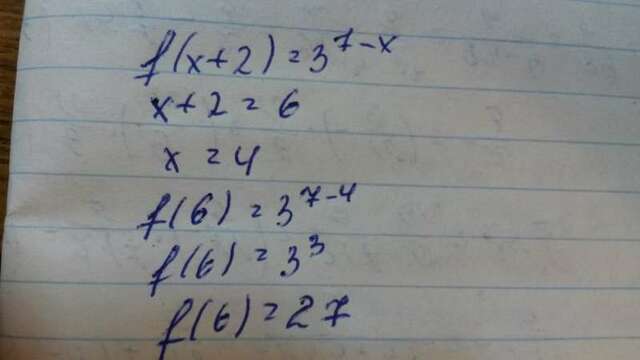 f(x+2)=3^{7-x}
x+2=6
x=4
f(6)=3^{7-4}
f(6)=3^3
f(6)=27